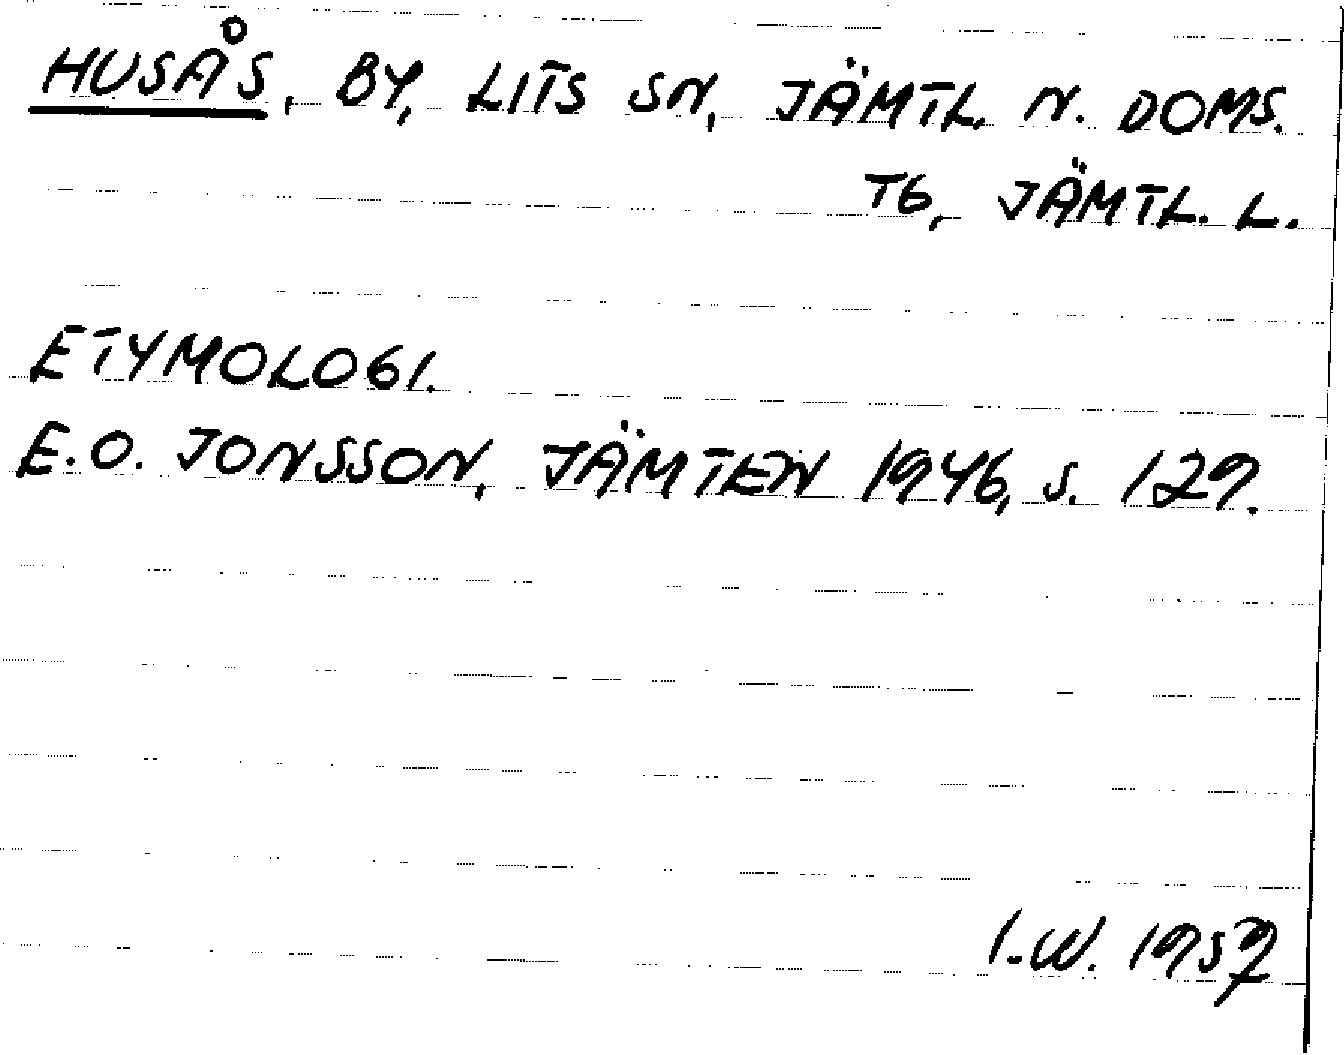 HUSÅS, BY, LITS SN, JÄMTL. N. DOMS.
TG, JÄMTL. L.
ETYMOLOGI.
E.O. JONSSON, JÄMTEN 1946, S. 129.
I.W. 1959